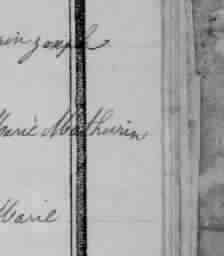 rin Joseph
Marie Mathurin
Marie